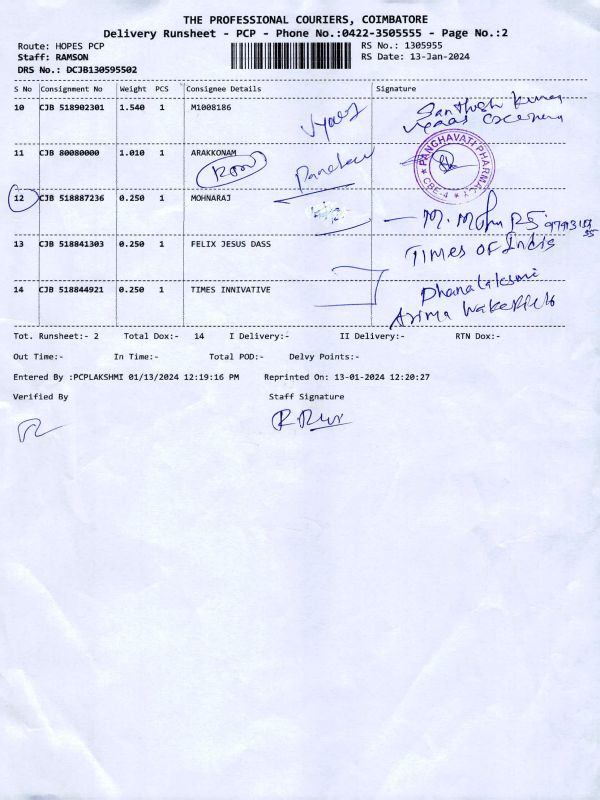 THE PROFESSIONAL COURIERS, COIMBATORE
Delivery Runsheet - PCP - Phone No.:0422-3505555 - Page No.:2
Route: HOPES PCP
Staff: RAMSON
DRS No.: DCJB130595502
RS No.: 1305955
RS Date: 13-Jan-2024
S No Consignment No Weight PCS Consignee Details Signature
10 CJB 518902301 1.540 1 M1008186
Vyaas
Santhosh Kumar
11 CJB 80080000 1.010 1 ARAKKONAM
PANCHAVATI PHARMACY
CBE-4
12 CJB 518887236 0.250 1 MOHNARAJ
13 CJB 518841303 0.250 1 FELIX JESUS DASS
Times of India
14 CJB 518844921 0.250 1 TIMES INNIVATIVE
Dhanalakshmi
Tot. Runsheet:- 2 Total Dox:- 14 I Delivery:- II Delivery:- RTN Dox:-
Out Time:- In Time:- Total POD:- Delvy Points:-
Entered By :PCPLAKSHMI 01/13/2024 12:19:16 PM Reprinted On: 13-01-2024 12:20:27
Verified By Staff Signature